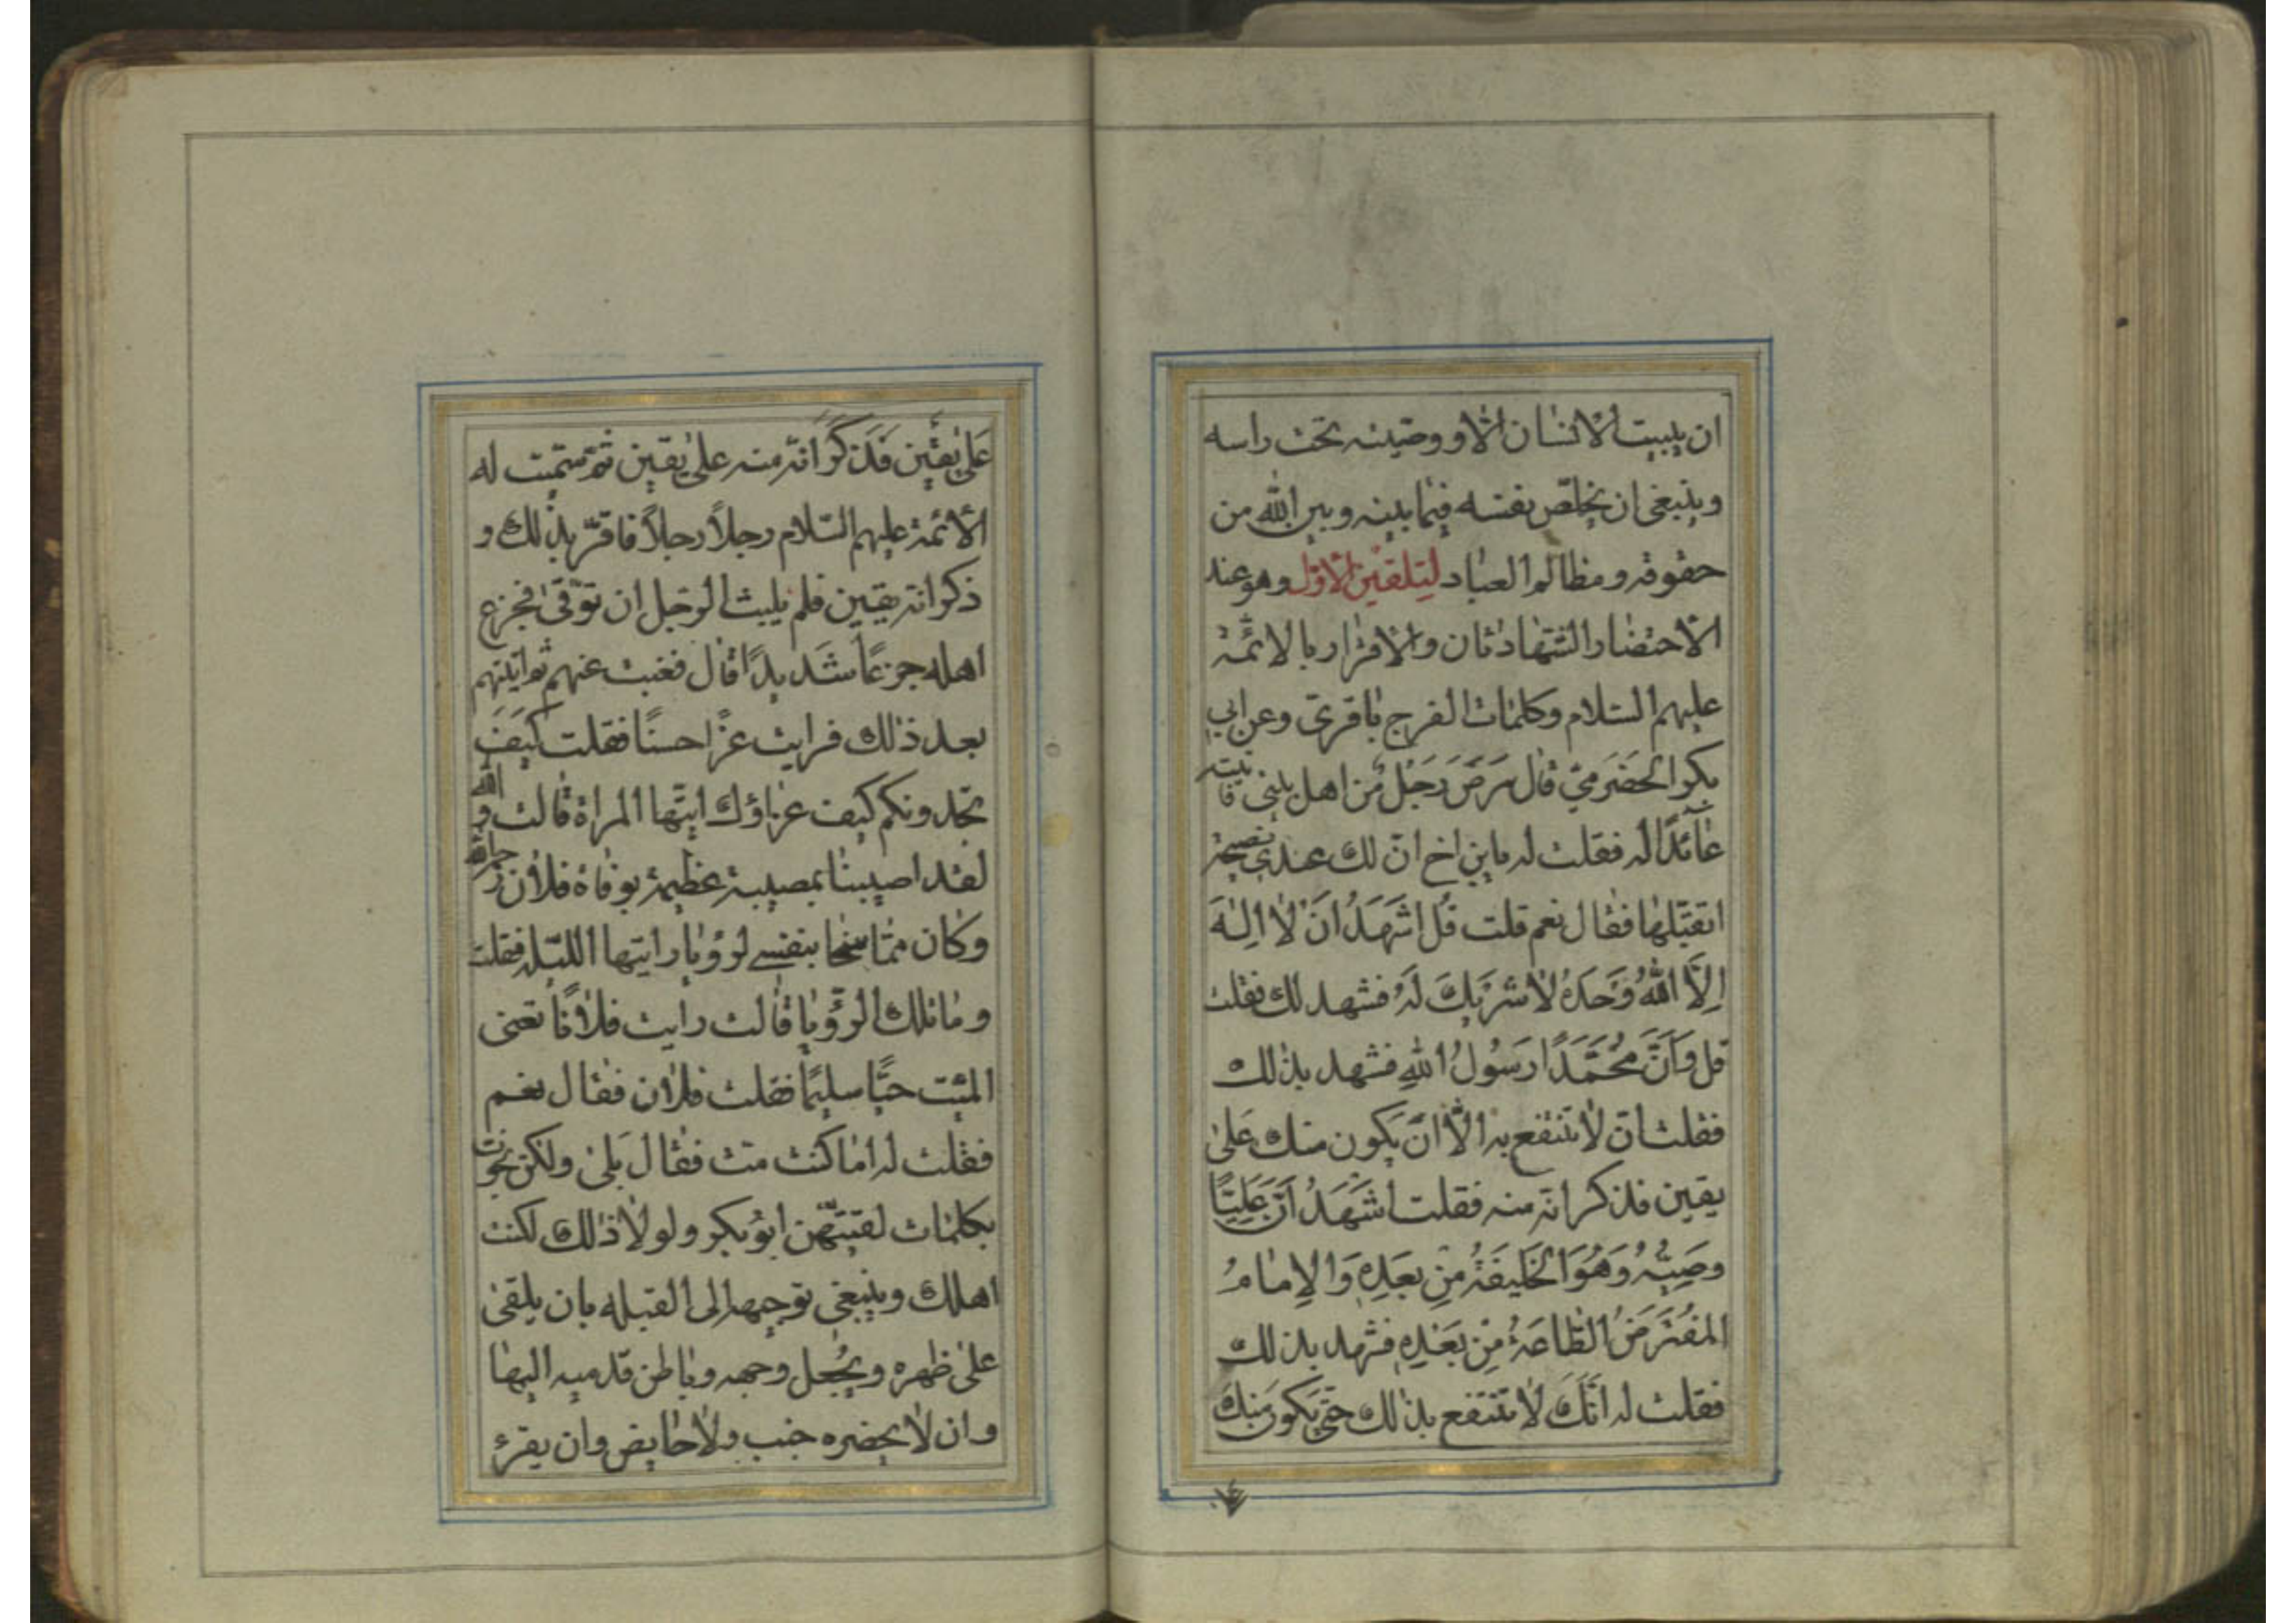 ان يبيت الانسان الا و وصيته تحت راسه
وينبغى ان يخلص نفسه فيما بينه وبين الله من
حقوقه ومظالم العباد لتلقين الاول وهو عند
الاحتضار الشهادتان والاقرار بالائمة
عليهم السلام وكلمات الفرج باقرى وعن ابي
بكر الحضرمي قال مَرِضَ رَجُلٌ مِن اهل بيتى فاتيته
عائدًا له فقلت له يابن اخ ان لك عندي نصيحة
اتقبلها فقال نعم قلت قُل اَشْهَدُ اَنْ لا اِلٰهَ
اِلَّا اللهُ وَحْدَهُ لا شَرِيكَ لَهُ فشهد لك فقلت
قل وَاَنَّ مُحَمَّدًا رَسُولُ اللهِ فشهد بذلك
فقلت ان لا تنتفع به الّا انْ يكون منك عَلى
يقين فذكر انه منه فقلت اَشْهَدُ اَنَّ عَلِيًّا
وَصِيُّهُ وَهُوَ الخَليفَةُ مِنْ بَعْدِهِ وَالاِمامُ
المُفْتَرَضُ الطَّاعَةُ مِنْ بَعْدِهِ فشهد بذلك
فقلت له انَّكَ لا تنتفع بذلك حتى يكون منك
عَلى يقين فَذَكَرَ انّه منه على يقين ثم سمّيت له
الائمة عليهم السّلام رجلاً رجلاً فاقرّ بذلك و
ذكر انه بيقين فلم يلبث الرجل ان توفّى فجزع
اهله جزعًا شَديدًا قال فغبت عنهم ثم اتيتهم
بعد ذلك فرايت عزًا حسنًا فقلت كيفَ
تجدونكم كيف عزاؤك ايّتها المراة قالت والله
لقد اصيبنا بمصيبة عظيمة بوفاة فلان رحمه الله
وكان ممّا سخا بنفسى لرؤيا رايتها الليله فقلت
وما تلك الرؤيا قالت رايت فلانًا تعنى
الميّت حيًّا سليمًا فقلت فلان فقال نعم
فقلت له اما كنت متّ فقال بَلى ولكن نجوت
بكلمات لقنيّهن ابُو بكر ولو لا ذلك لكنت
اهلك وينبغى توجيهه الى القبله بان يلقى
على ظهره ويُجعل وجهه وباطن قدميه اليها
وان لا يحضره جنب ولا حايض وان يقرء